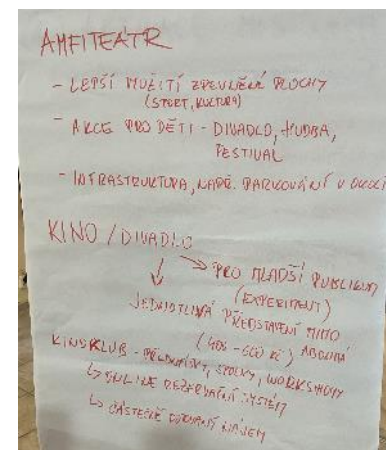 AMFITEÁTR
- LEPŠÍ VUŽITÍ ZPEVNĚNÉ PLOCHY
(SPORT, KULTURA)
- AKCE PRO DĚTI - DIVADLO, HUDBA,
FESTIVAL
- INFRASTRUKTURA, NAPŘ. PARKOVÁNÍ V OKOLÍ
KINO / DIVADLO
↓ → PRO MLADŠÍ PUBLIKUM
(EXPERIMENT)
JEDNOTLIVÁ PŘEDSTAVENÍ MIMO
(400 - 600 Kč) ABONMÁ
KINOKLUB - PŘEDNÁŠKY, SPOLKY, WORKSHOPY
↳ ONLINE REZERVAČNÍ SYSTÉM
↳ ČÁSTEČNĚ DOTOVANÝ NÁJEM